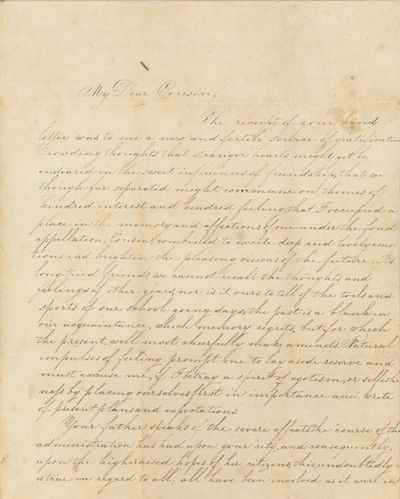 My Dear Cousin,
The receipt of your kind
letter was to me a new and fertile source of gratification
Crowding thoughts that stranger hearts might yet be
endeared in the sweet influences of friendship, that we
though far separated might commune on themes of
kindred interest and kindred feeling, that I occupied a
place in the memory and affections of one under the fond
appellation, Cousin, combined to excite deep and lively emo
tions and brighten the pleasing visions of the future. As
long tried friends we cannot recall the thoughts and
feelings of other years, nor is it ours to tell of the toils and
sports of our school going days; the past is a blank in
our acquaintance, which memory regrets, but for which
the present, will most cheerfully make amends. Natural
impulses of feeling prompt me to lay aside reserve and
must excuse me, if I betray a spirit of egotism, or selfish
ness by placing ourselves first in importance and write
of present plans and expectations.
Your father speaks of the severe effects the course of the
administration has had upon your city, and consequently,
upon the high raised hopes of her citizens; this, undoubtedly
is true in regard to all, all have been involved as it were in